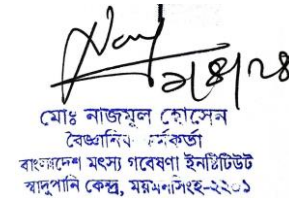 ৯/৪/২৪
মোঃ নাজমুল হোসেন
বৈজ্ঞানিক কর্মকর্তা
বাংলাদেশ মৎস্য গবেষণা ইনস্টিটিউট
স্বাদুপানি কেন্দ্র, ময়মনসিংহ-২২০১